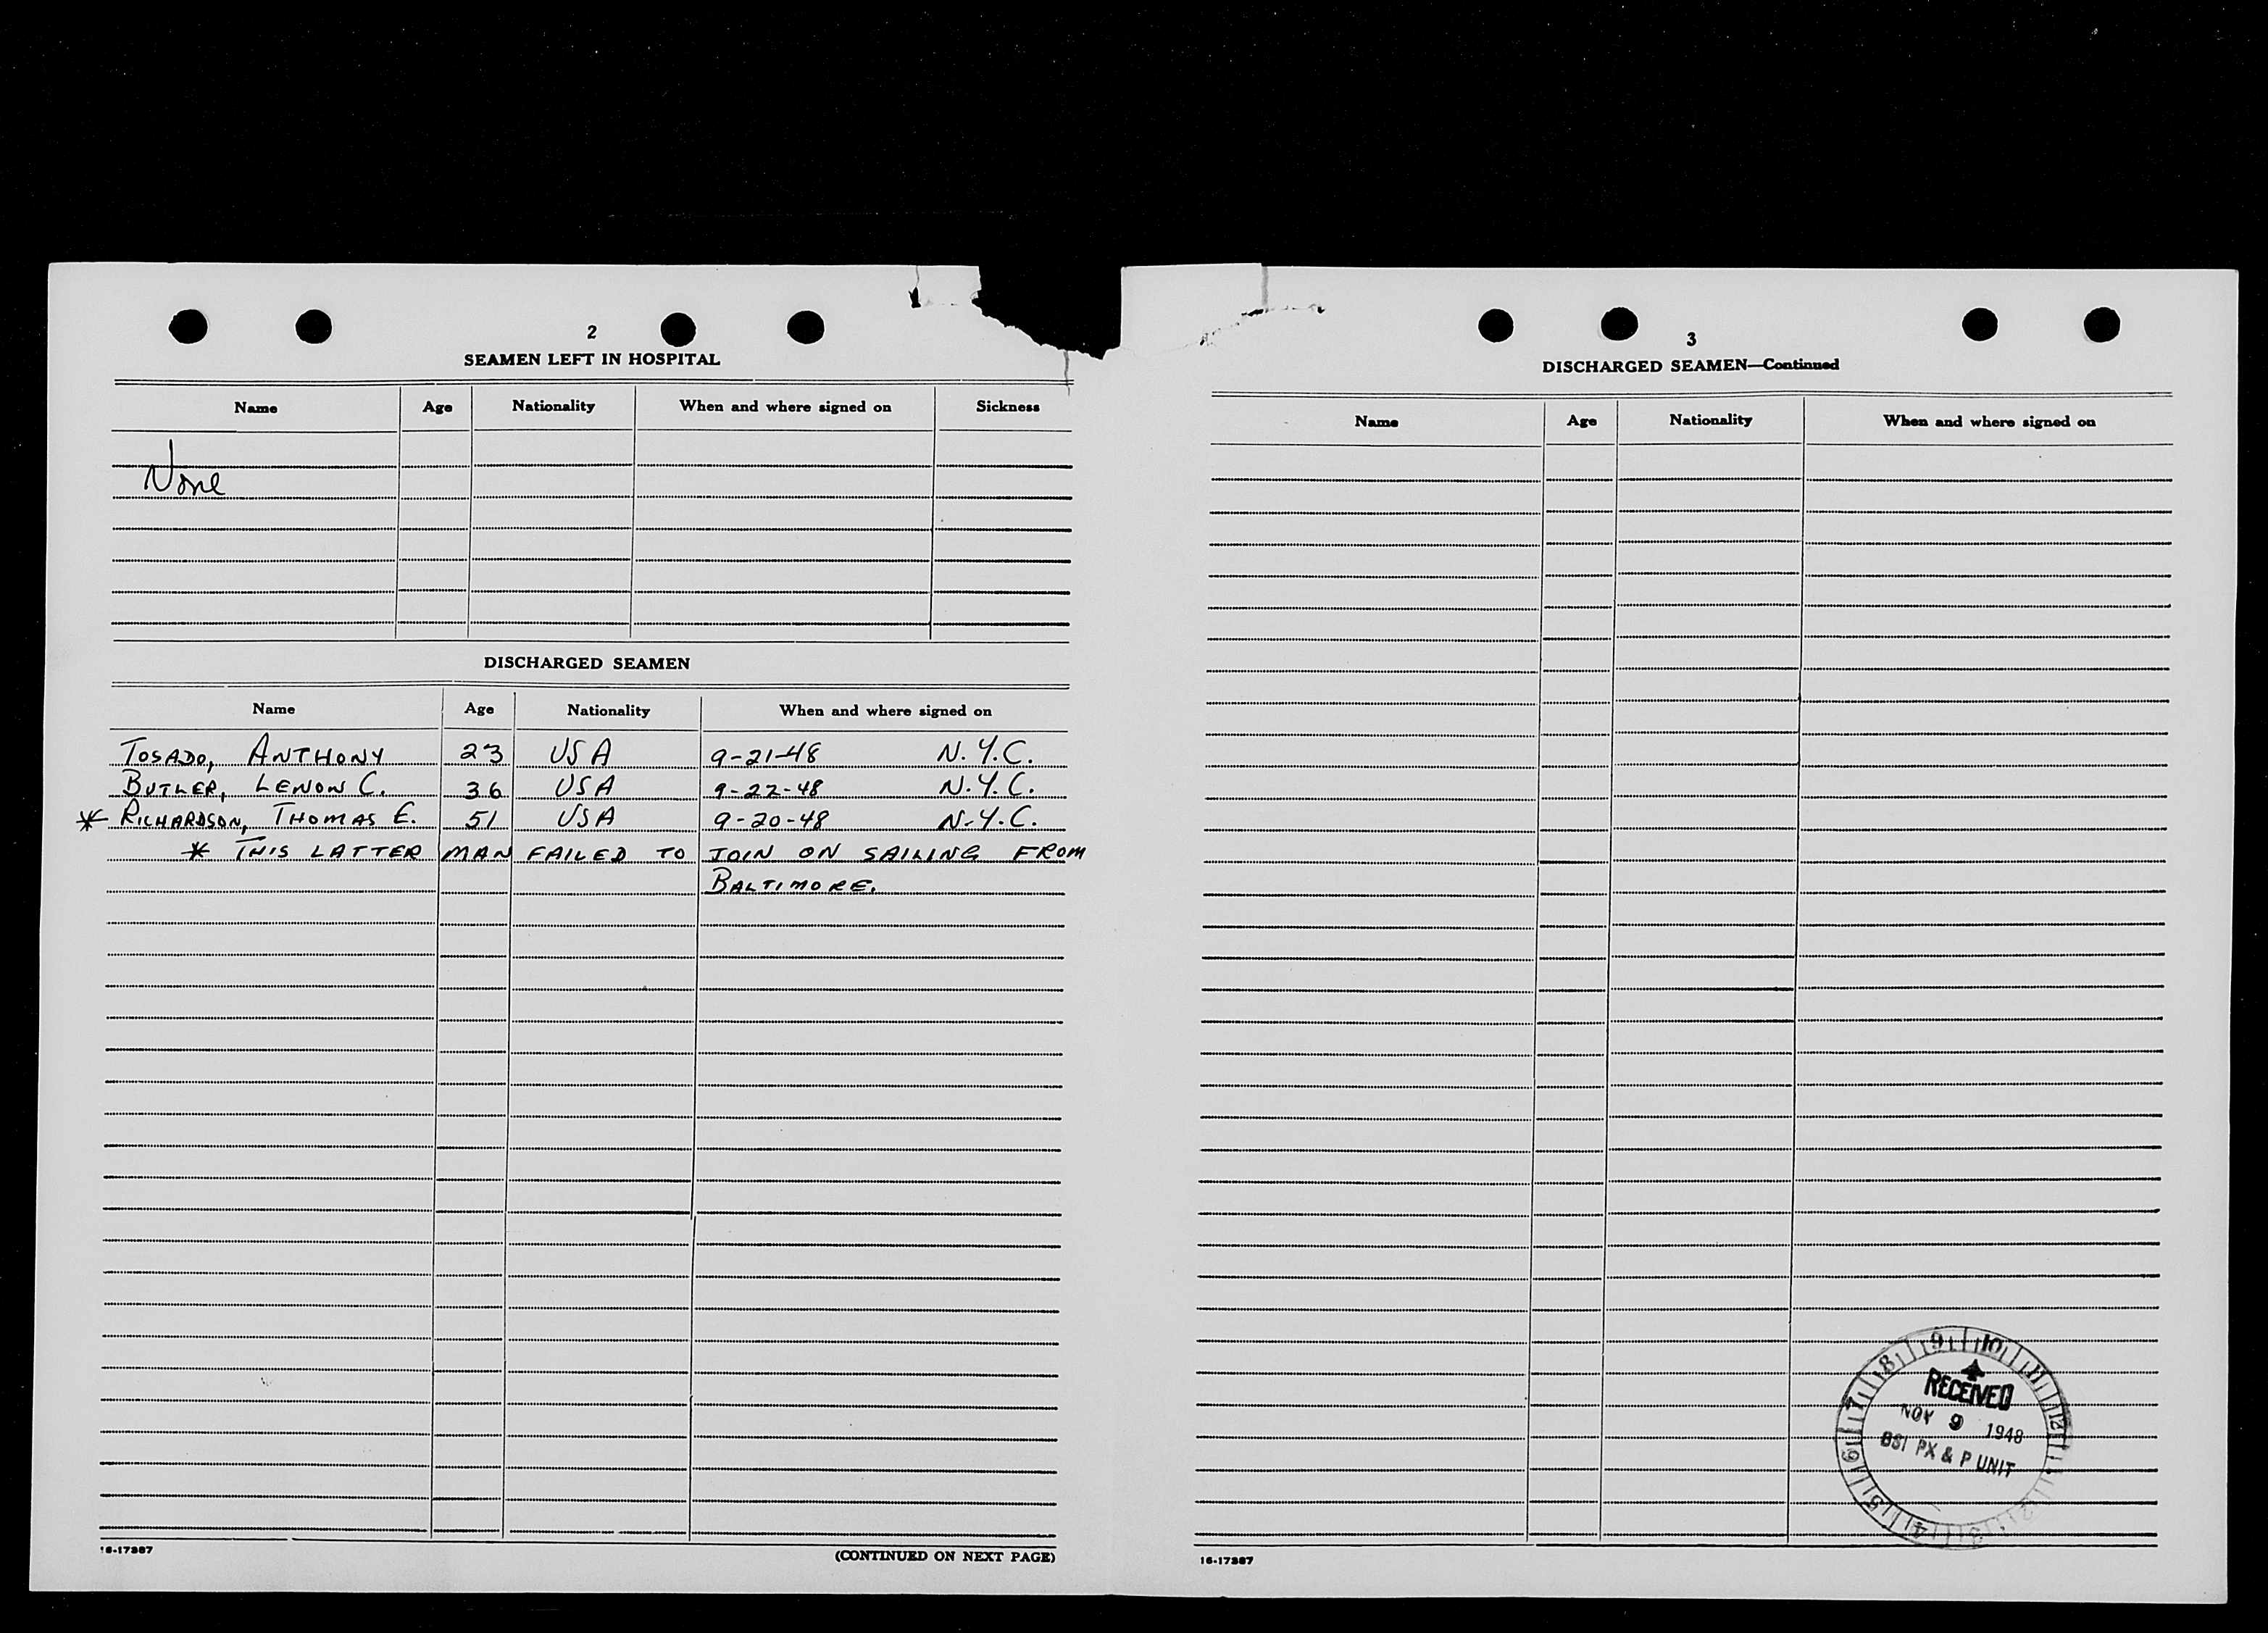 2
SEAMEN LEFT IN HOSPITAL
Name Age Nationality When and where signed on Sickness
None
DISCHARGED SEAMEN
Name Age Nationality When and where signed on
TOSADO, ANTHONY 23 USA 9-21-48 N.Y.C.
BUTLER, LENON C. 36 USA 9-22-48 N.Y.C.
* RICHARDSON, THOMAS E. 51 USA 9-20-48 N.Y.C.
* THIS LATTER MAN FAILED TO JOIN ON SAILING FROM
BALTIMORE.
16-17387
(CONTINUED ON NEXT PAGE)
3
DISCHARGED SEAMEN—Continued
Name Age Nationality When and where signed on
9 10 11 12 1 2 3 4 5 6 7 8
RECEIVED
NOV 9 1948
BSI PX & P UNIT
16-17387